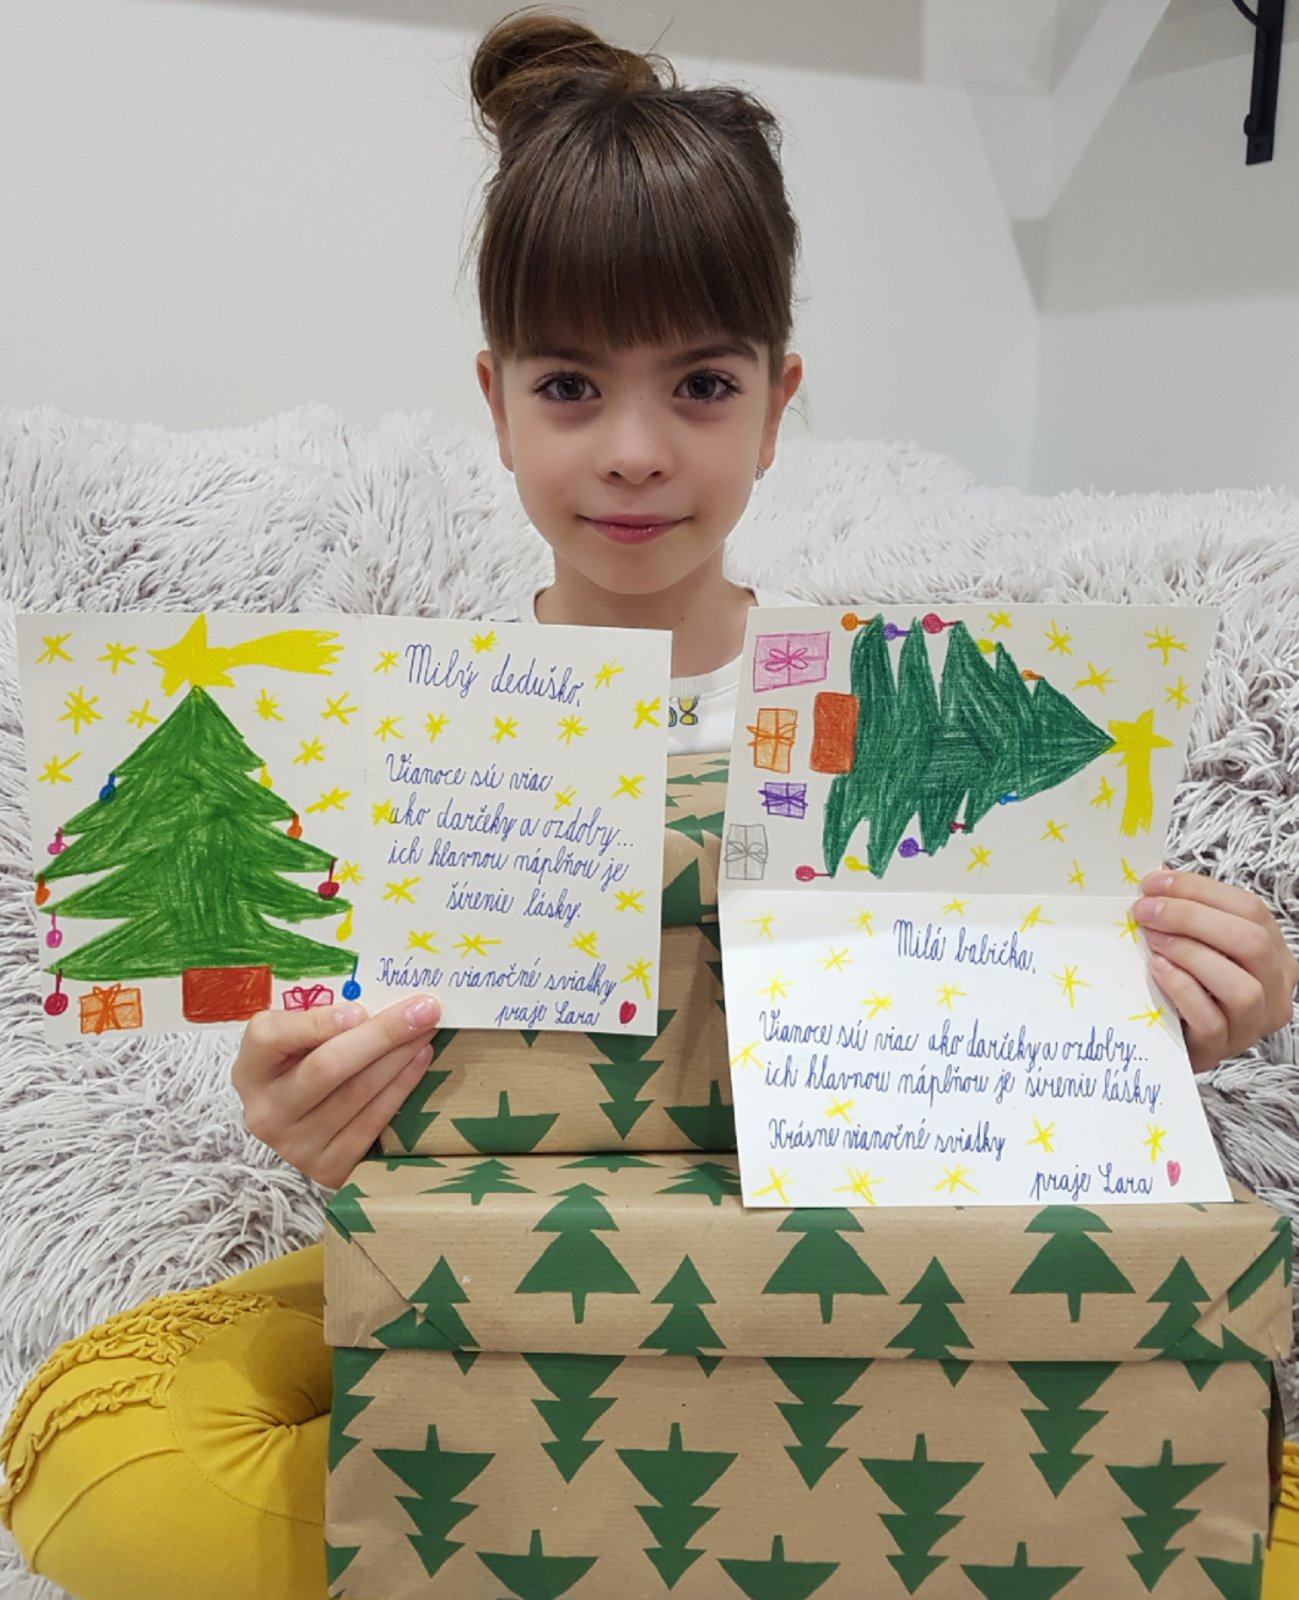 Milý deduško,
Vianoce sú viac
ako darčeky a ozdoby...
ich hlavnou náplňou je
šírenie lásky.
Krásne vianočné sviatky
praje Lara
Milá babička,
Vianoce sú viac ako darčeky a ozdoby...
ich hlavnou náplňou je šírenie lásky.
Krásne vianočné sviatky
praje Lara